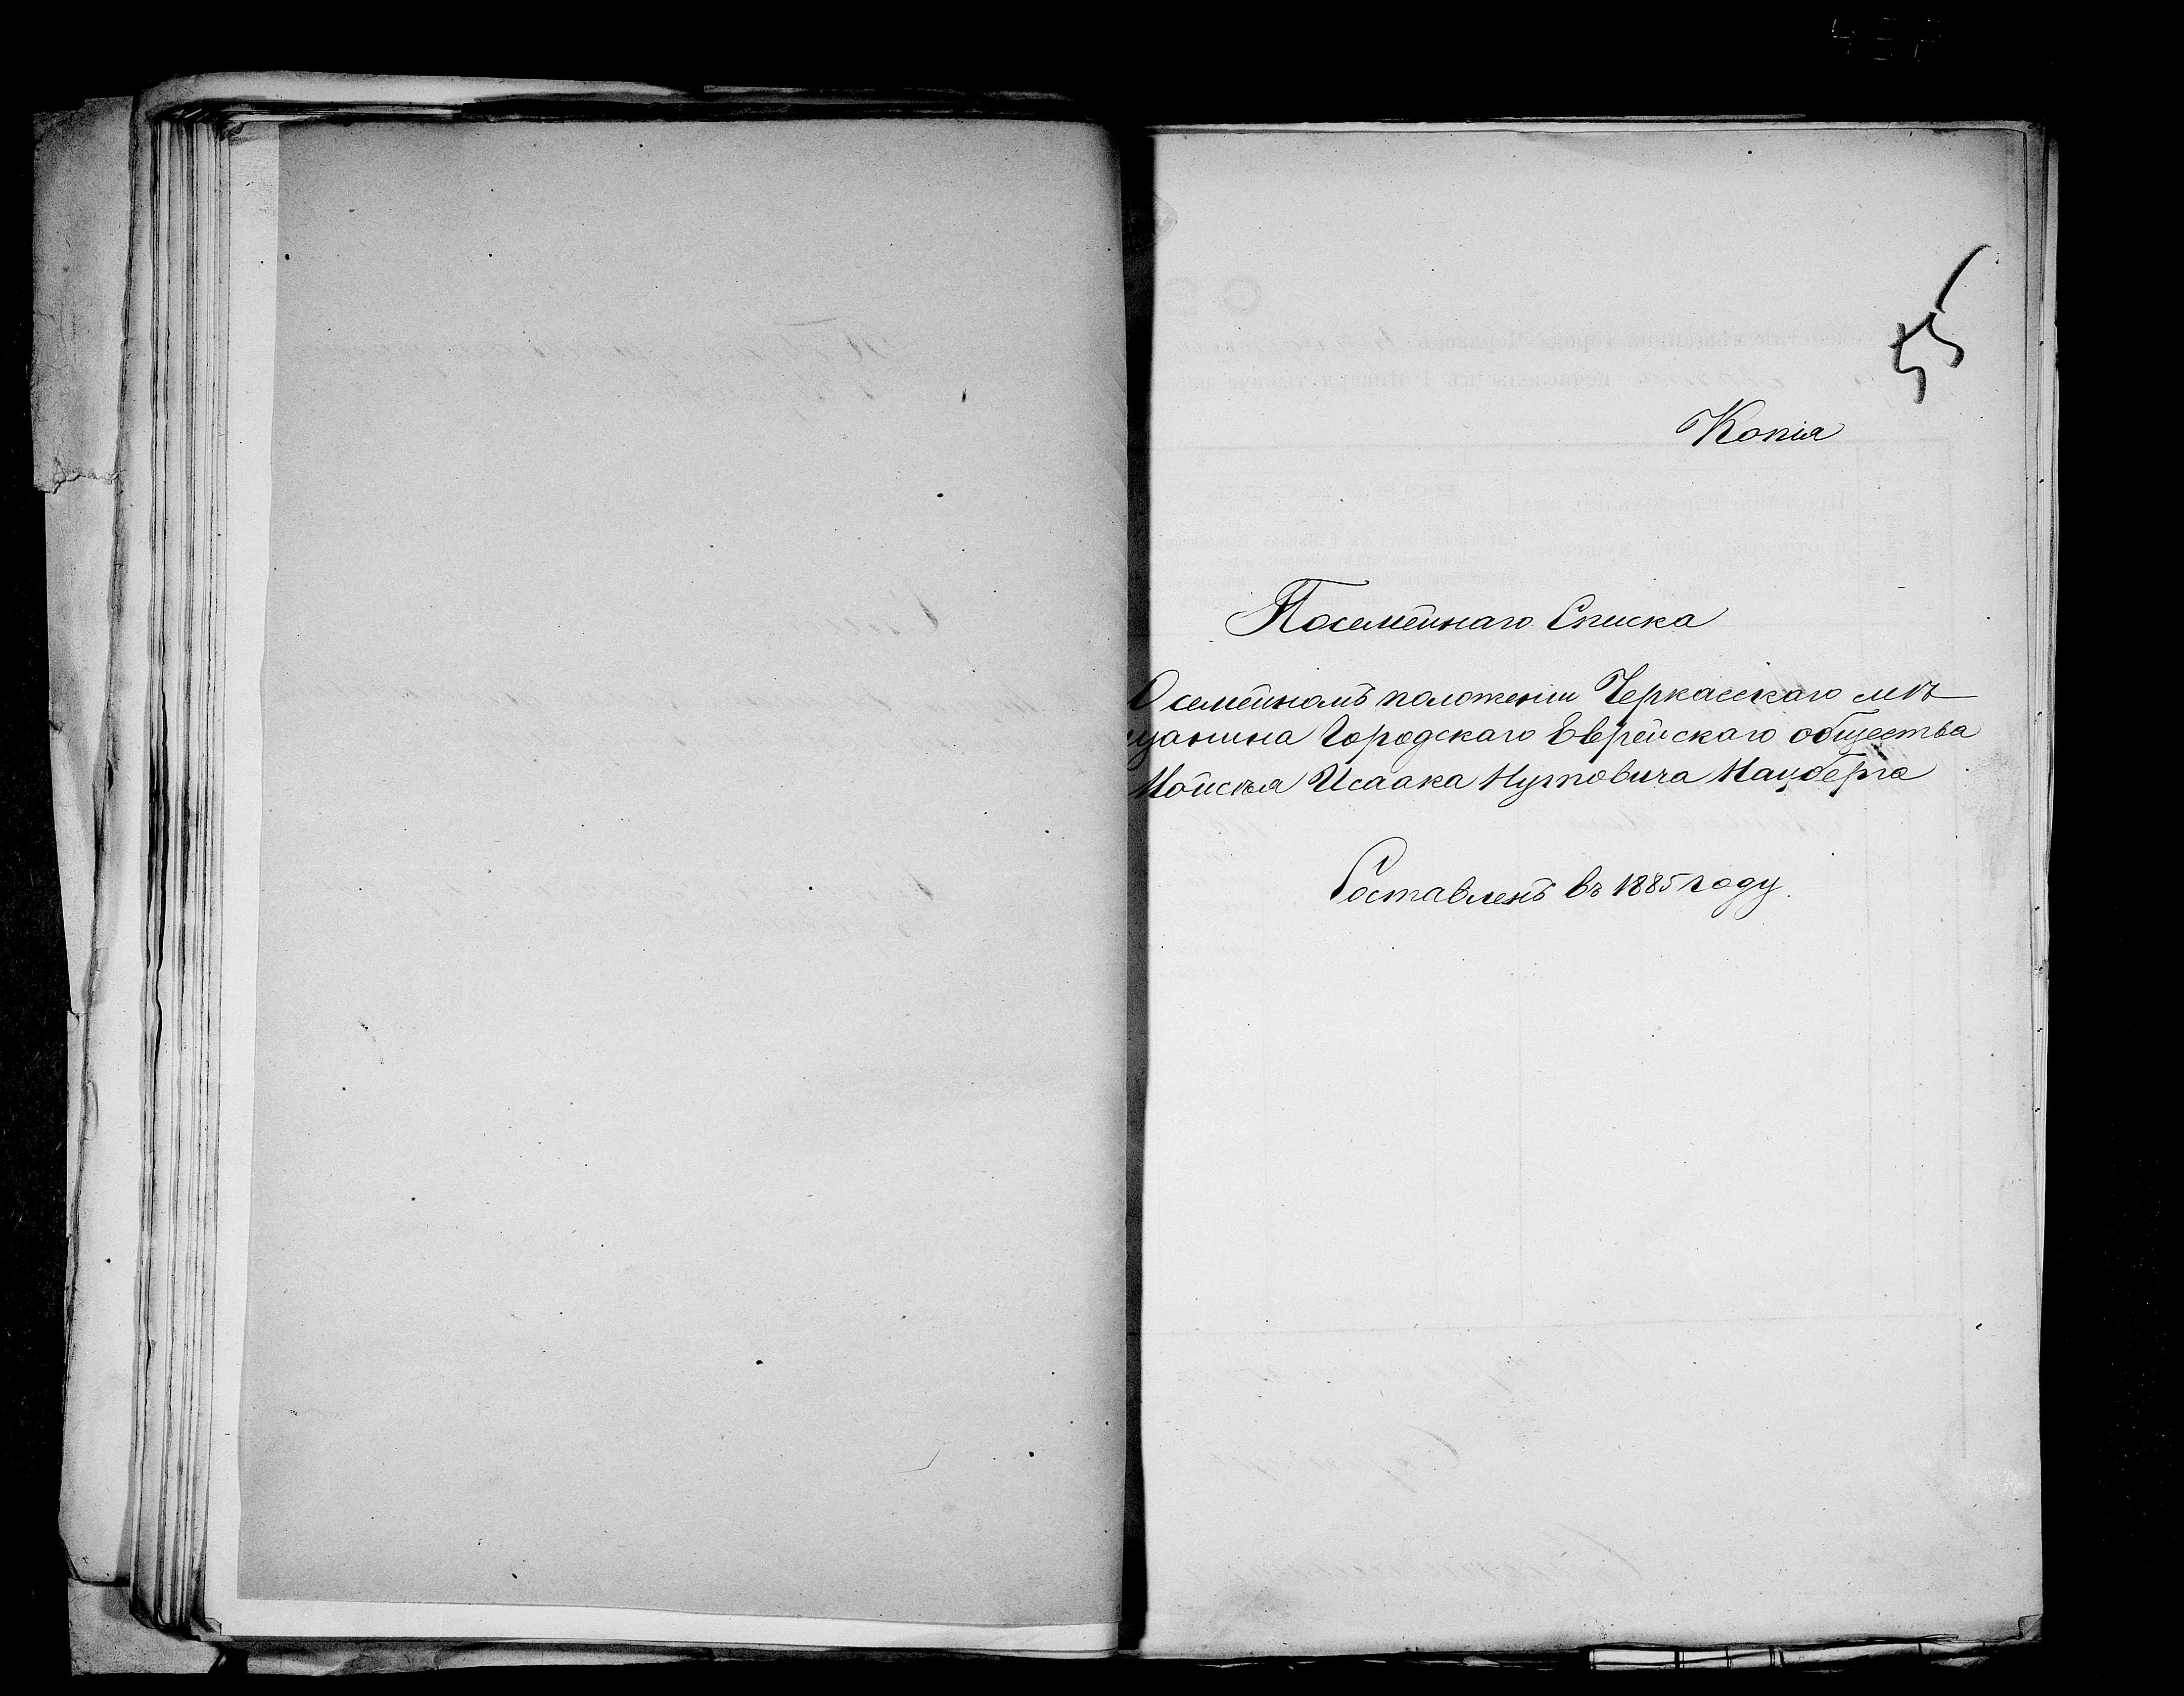 55
Копія
Посемейнаго Списка
О семейномъ положеніи Черкасскаго мѣ-
щанина Городскаго Еврейскаго общества
Мойсѣя Исаака Нутовича Нацберга
Составленъ въ 1885 году.